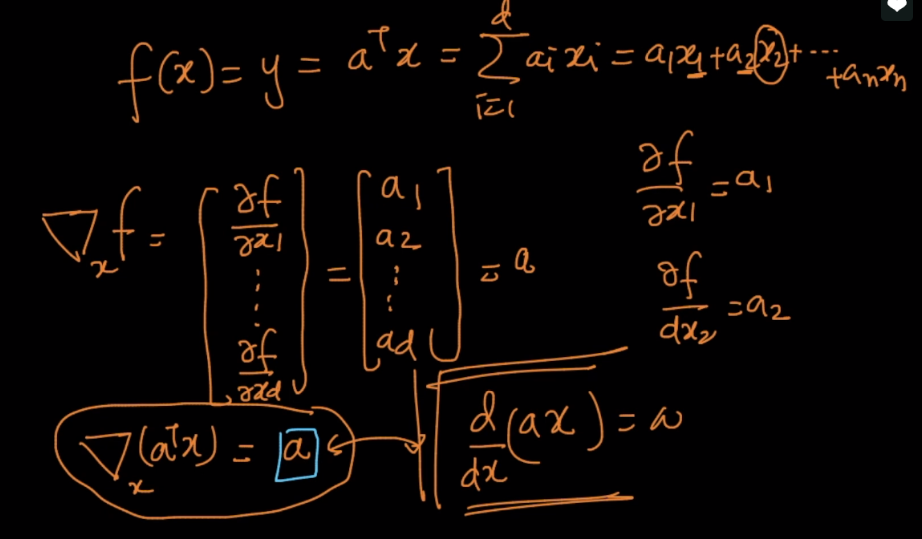 f(x) = y = aᵀx = ∑ᵢ₌₁ᵈ aᵢxᵢ = a₁x₁ + a₂x₂ + ⋯ + aₙxₙ
∂f/∂x₁ = a₁
∇ₓf = [∂f/∂x₁ ⋮ ∂f/∂x_d] = [a₁ a₂ ⋮ a_d] = a
∂f/dx₂ = a₂
∇ₓ(aᵀx) = a
d/dx (ax) = a